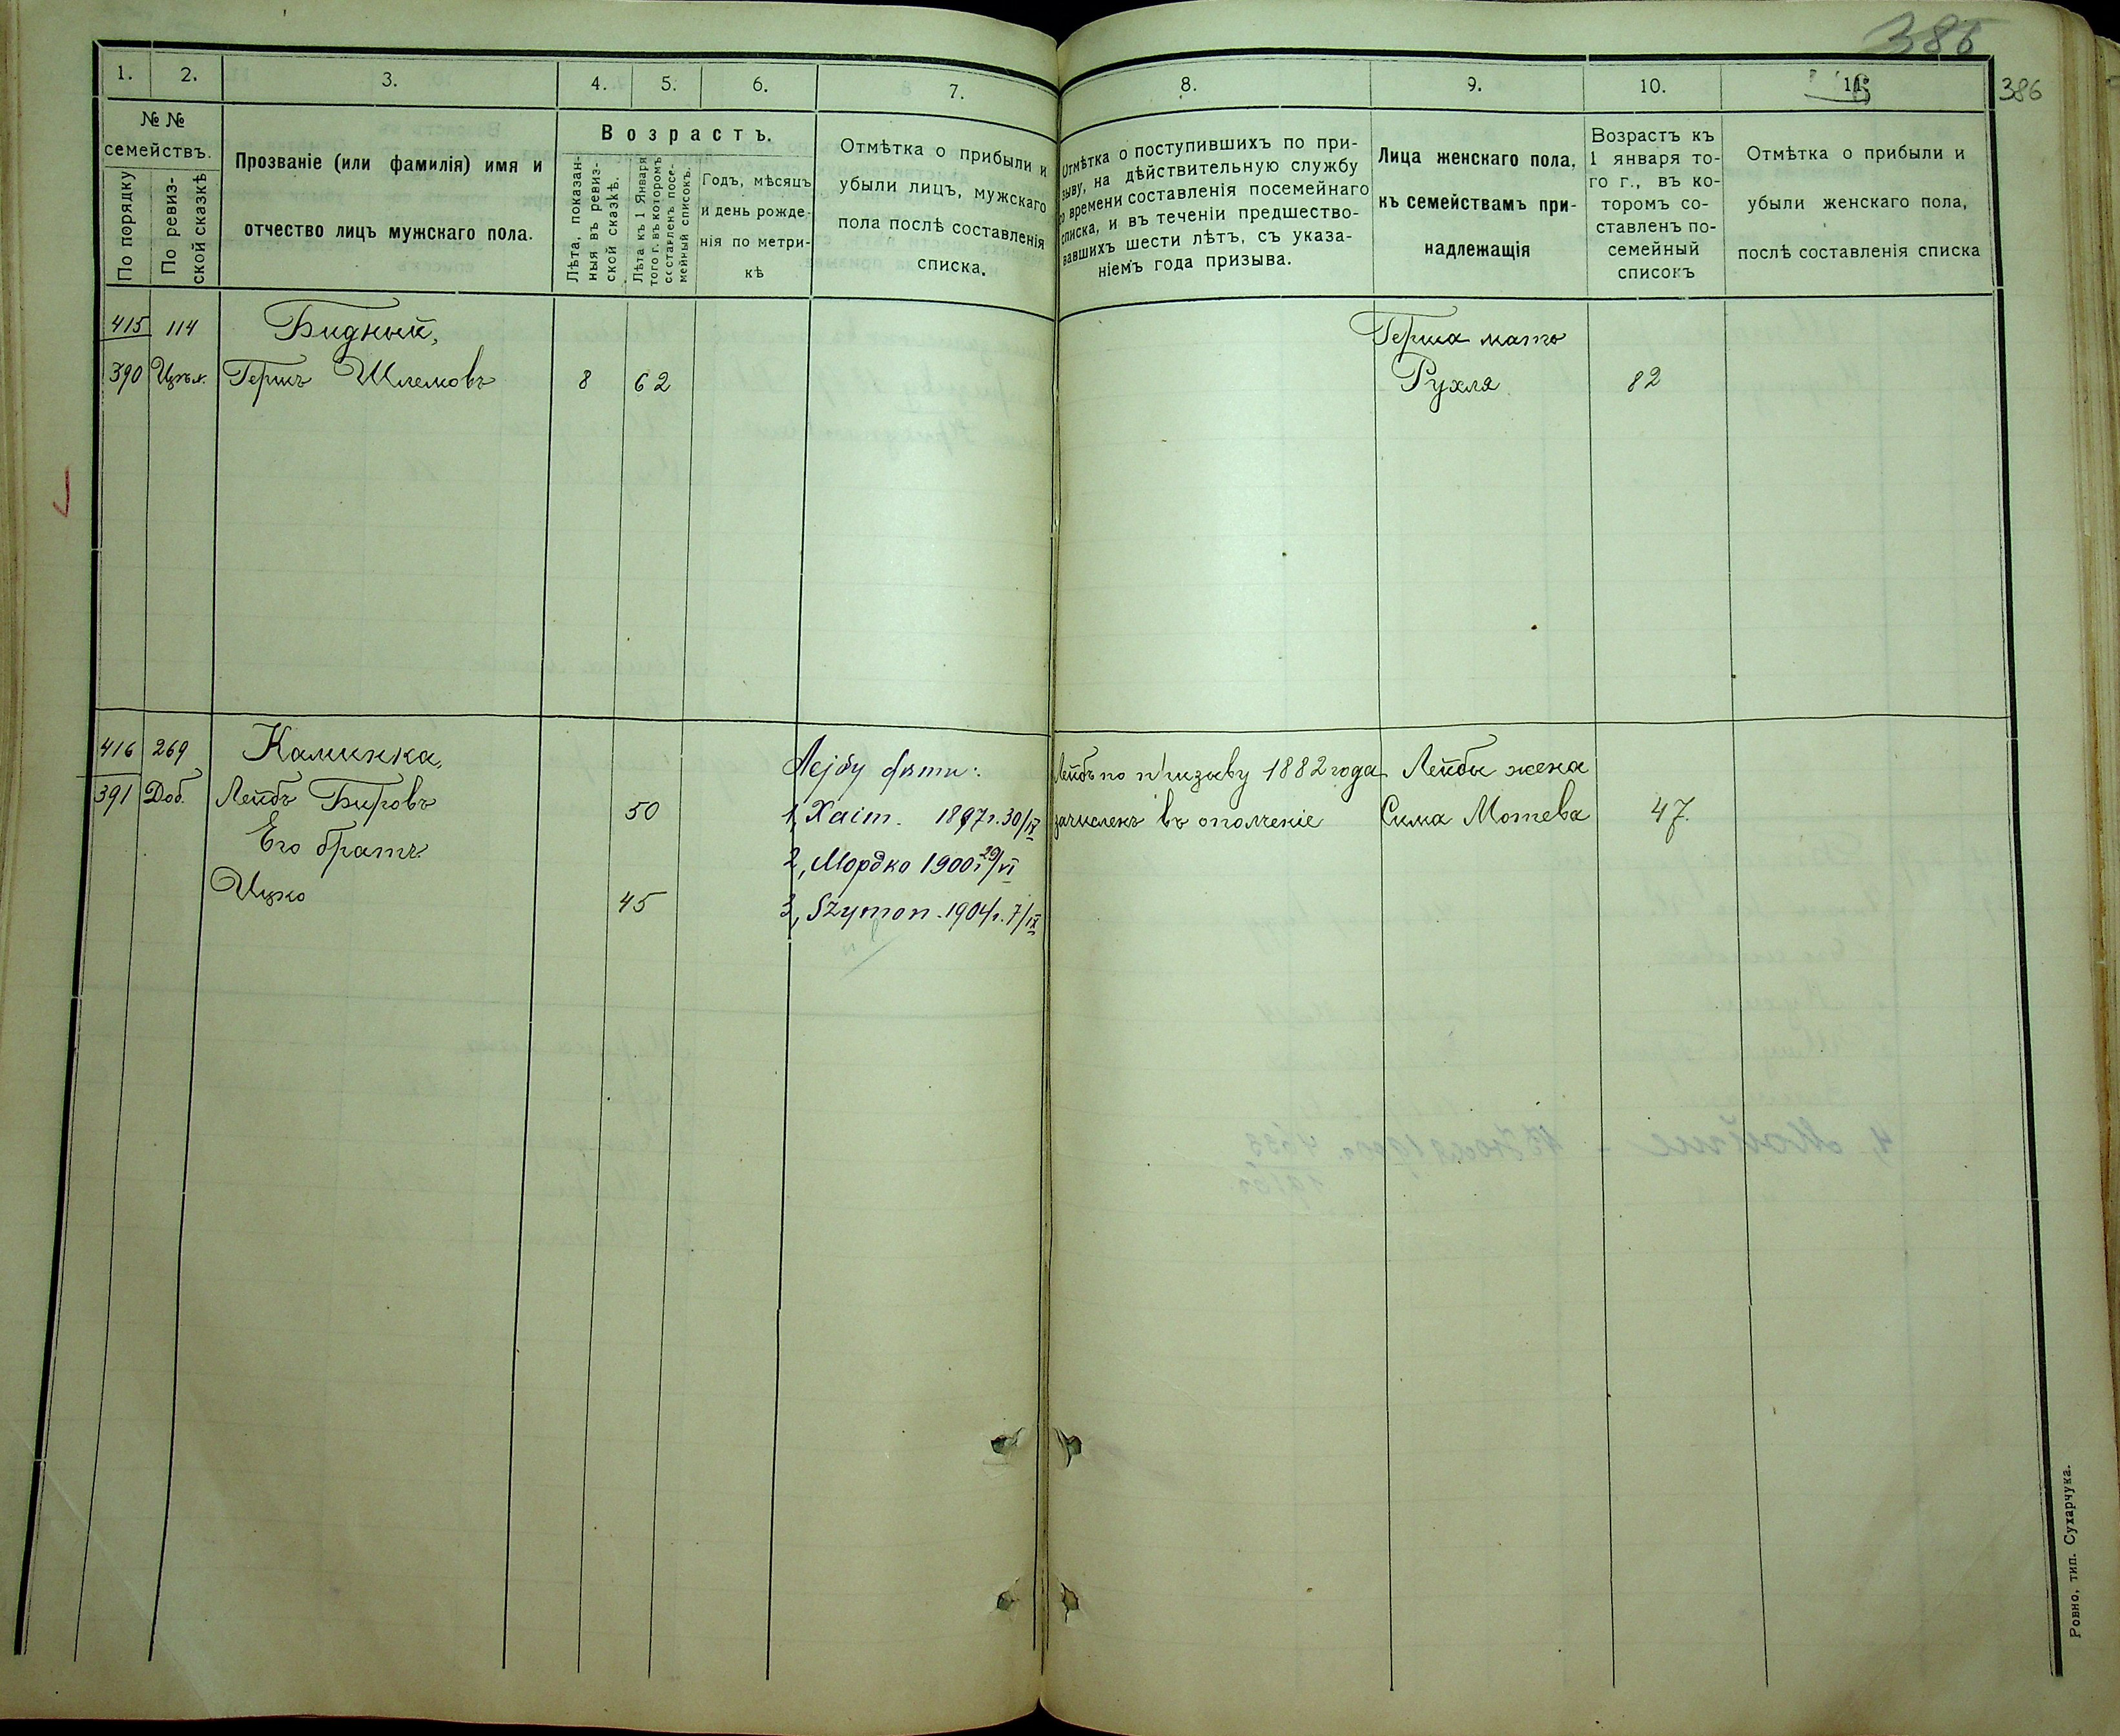 386
386
1. 2. 3. 4. 5. 6. 7. 8. 9. 10. 11.
№ №
семействъ.
По порядку
По ревиз-
ской сказкѣ
Прозваніе (или фамилія) имя и
отчество лицъ мужскаго пола.
Возрастъ.
Лѣта, показан-
ныя въ ревиз-
ской сказкѣ.
Лѣта къ 1 Января
того г. въ которомъ
составленъ посе-
мейный списокъ.
Годъ, мѣсяцъ
и день рожде-
нія по метри-
кѣ
Отмѣтка о прибыли и
убыли лицъ, мужскаго
пола послѣ составленія
списка.
Отмѣтка о поступившихъ по при-
зыву, на дѣйствительную службу
со времени составленія посемейнаго
списка, и въ теченіи предшество-
вавшихъ шести лѣтъ, съ указа-
ніемъ года призыва.
Лица женскаго пола,
къ семействамъ при-
надлежащія
Возрастъ къ
1 января то-
го г., въ ко-
торомъ со-
ставленъ по-
семейный
списокъ
Отмѣтка о прибыли и
убыли женскаго пола,
послѣ составленія списка
415 114 Бидный, Герша мать
390 Гершъ Шлемовъ 8 62 Рухля 82
416 269 Каминка, Лейбу дѣти: Лейбъ по призыву 1882 года Лейбы жена
391 Доб. Лейбъ Беровъ 50 1, Хаim. 1897г. 30/IX зачисленъ въ ополченіе Сима Мотева 47.
Его братъ 2, Мордко 1900г 29/VI
Ицко 45 3, Szymon. 1904г. 7/IX
Ровно, тип. Сухарчука.